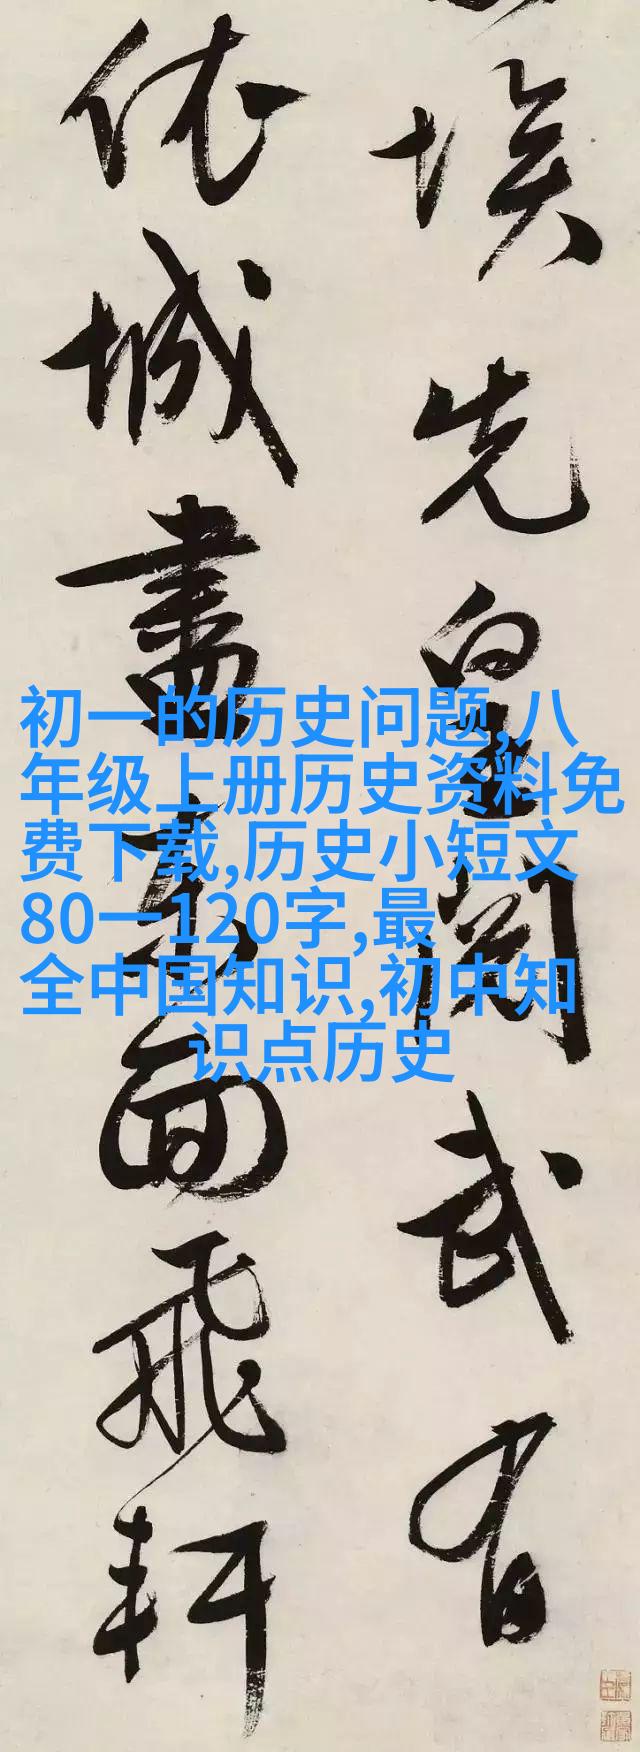 埃先皇閱武有
依城盡東面飛軒
初一的历史问题,八
年级上册历史资料免
费下载,历史小短文
80一120字,最
全中国知识,初中知
识点历史